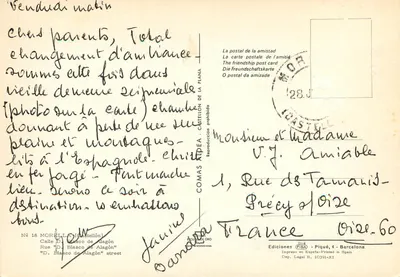 Vendredi matin
Chers parents, Total
changement d'ambiance -
sommes cette fois dans
vieille demeure seigneuriale
(photo sur la carte) chambre
donnant à perte de vue sur
plaine et montagnes -
lits à l'Espagnole. Christ
en fer forgé - Tout marche
bien. Serons ce soir à
destination.
bons.
COMAS ALDEA - CASTELLON DE LA PLANA
Reproducción prohibida
La postal de la amistad
La carte postale de l'amitié
The friendship post card
Die Freundschaftskarte
O postal da amizade
MOR
28
(CASTELL
Monsieur et Madame
V. J. Amiable
1, Rue des Tamaris
Précy s/Oise
France Oise-60
Calle "D. Blasco de Alagón"
Rue "D. Blasco de Alagón"
"D. Blasco de Alagón" street
Janine
Ediciones - Piqué, 4 - Barcelona